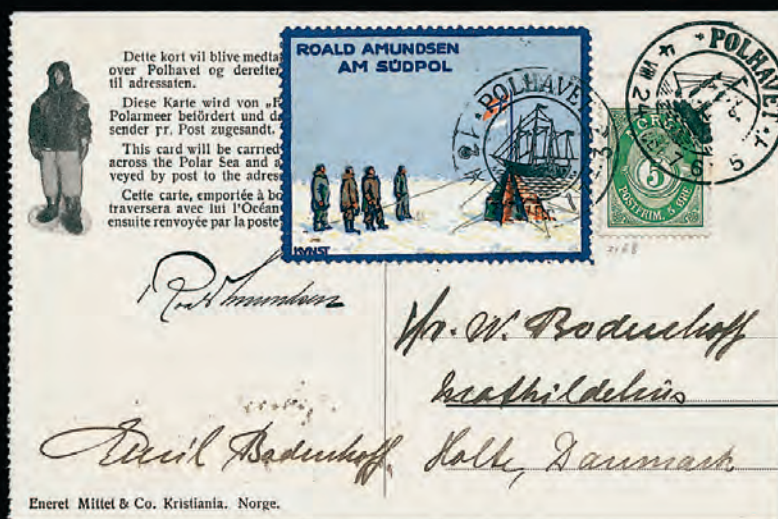 Dette kort vil blive medta
over Polhavet og derefter
til adressaten.
Diese Karte wird von „F
Polarmeer befördert und da
sender pr. Post zugesandt.
This card will be carried
across the Polar Sea and a
veyed by post to the adres
Cette carte, emportée à bo
traversera avec lui l'Océan
ensuite renvoyée par la poste
ROALD AMUNDSEN
AM SÜDPOL
KUNST
POLHAVET
POLHAVET
4 VIII 24
NORGE
5
POSTFRIM. 5 ØRE
2168
Roald Amundsen
Hr. W. Bodenhoff
Mathildehus
Holte, Danmark
Emil Bodenhoff.
Eneret Mittet & Co. Kristiania. Norge.